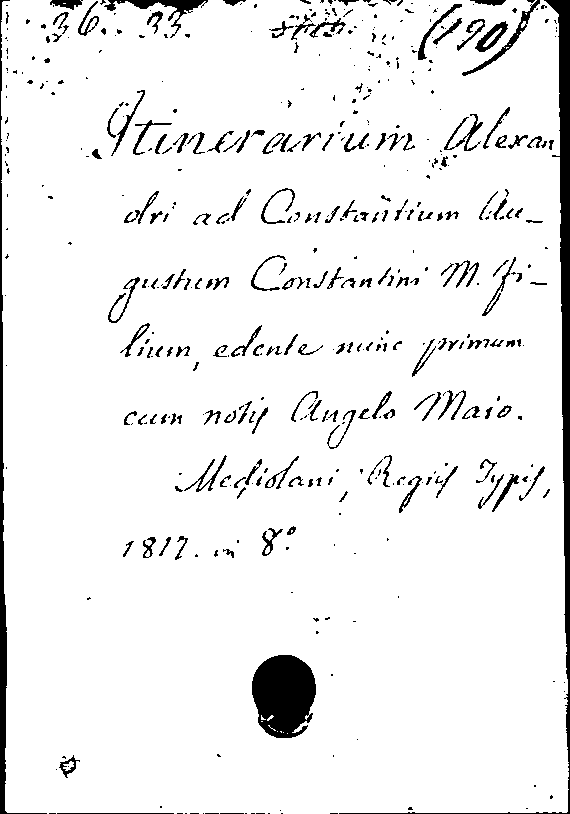 36. 33. (190)
Itinerarium Alexan-
dri ad Constantium Au-
gustum Constantini M. fi-
lium, edente nunc primum
cum notis Angelo Maio.
Mediolani, Regiis Typis,
1817. in 8.º